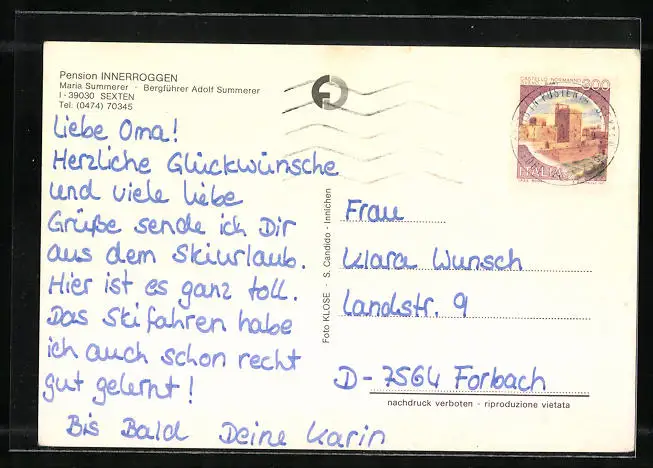 Pension INNERROGGEN
Maria Summerer - Bergführer Adolf Summerer
I - 39030 SEXTEN
Tel. (0474) 70345
Liebe Oma!
Herzliche Glückwünsche
und viele liebe
Grüße sende ich Dir
aus dem Skiurlaub.
Hier ist es ganz toll.
Das Skifahren habe
ich auch schon recht
gut gelernt!
Bis Bald Deine Karin
Foto KLOSE - S. Candido - Innichen
CASTELLO NORMANNO
300
ITALIA
Frau
Klara Wunsch
Landstr. 9
D-7564 Forbach
nachdruck verboten - riproduzione vietata